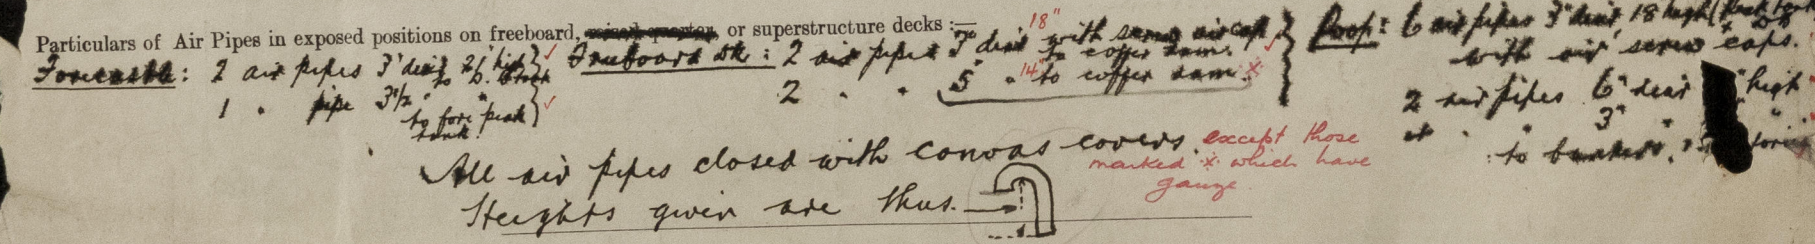 Particulars of Air Pipes in exposed positions on freeboard, or superstructure decks :—
Forecastle: 2 air pipes 3" diar 21" high
to D. Tank
1 " pipe 3½" "
to fore peak
tank
Freeboard dk: 2 air pipes 3" diar 18" with screw air cap
to coffer dam.
2 " " 5 " 14" to coffer dam. x
Poop: 6 air pipes 3" diar 18 high
with air screw caps.
2 air pipes 6" diar high
3"
to bunkers.
All air pipes closed with canvas covers. except those
marked x which have
gauze
Heights given are thus.